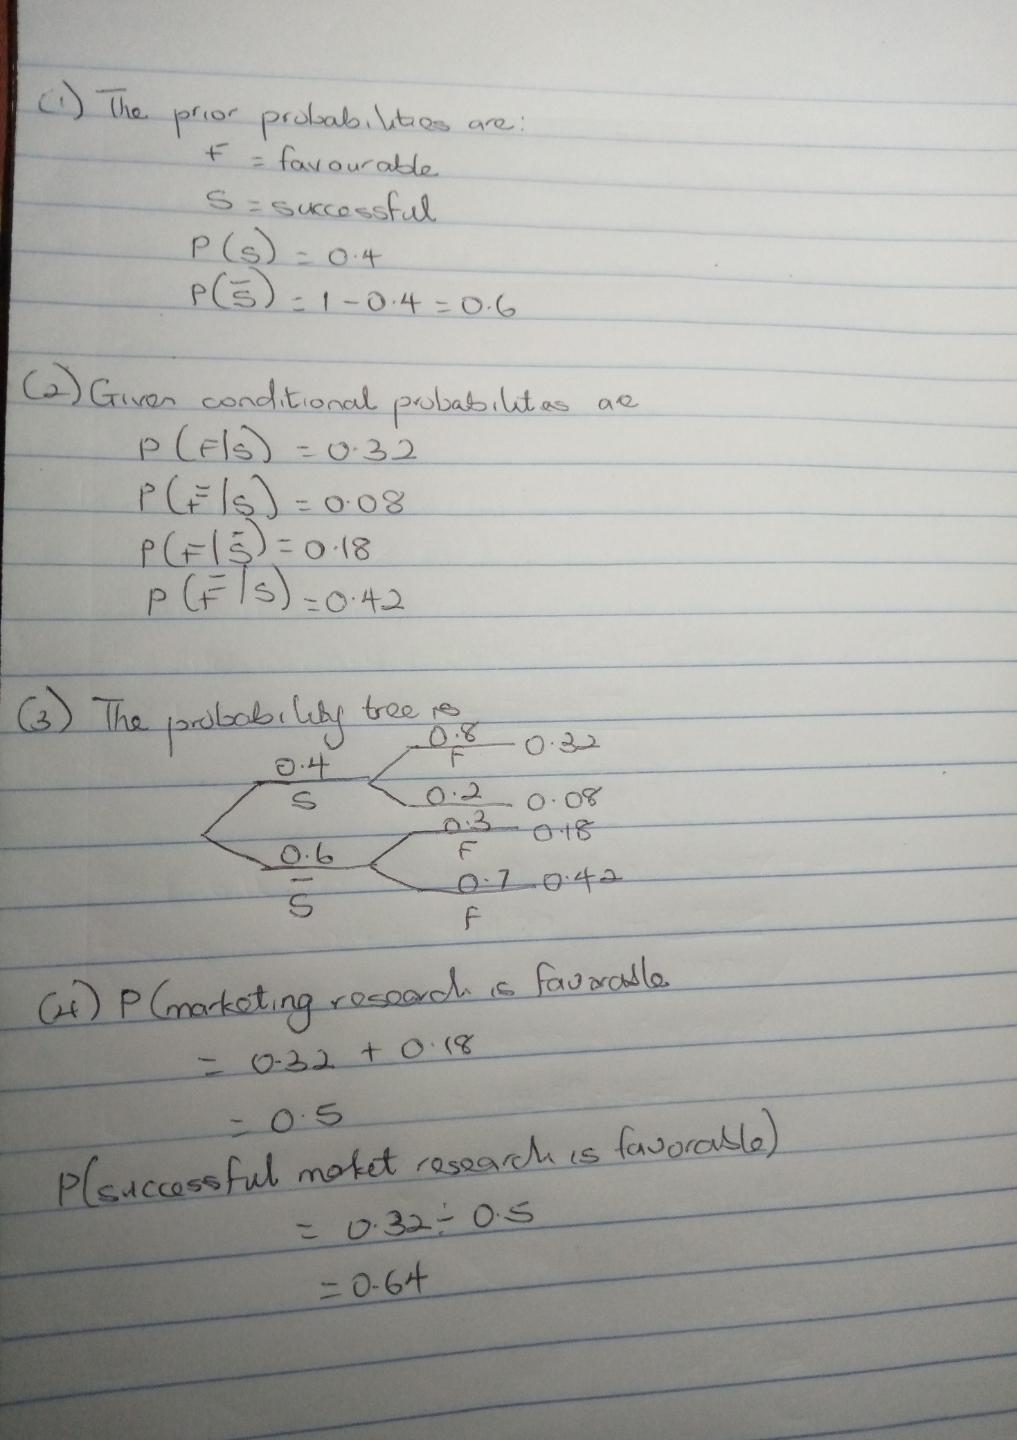 (1) The prior probabilities are:
F = favourable
S = successful
P(S) = 0.4
P(S̅) = 1 - 0.4 = 0.6
(2) Given conditional probabilities are
P(F|S) = 0.32
P(F̅|S) = 0.08
P(F|S̅) = 0.18
P(F̅|S) = 0.42
(3) The probability tree is
0.8
F
0.32
0.4
S
0.2
0.08
0.3
F
0.18
0.6
S̅
0.7
F
0.42
(4) P(marketing research is favorable
= 0.32 + 0.18
= 0.5
P(successful market research is favorable)
= 0.32 ÷ 0.5
= 0.64